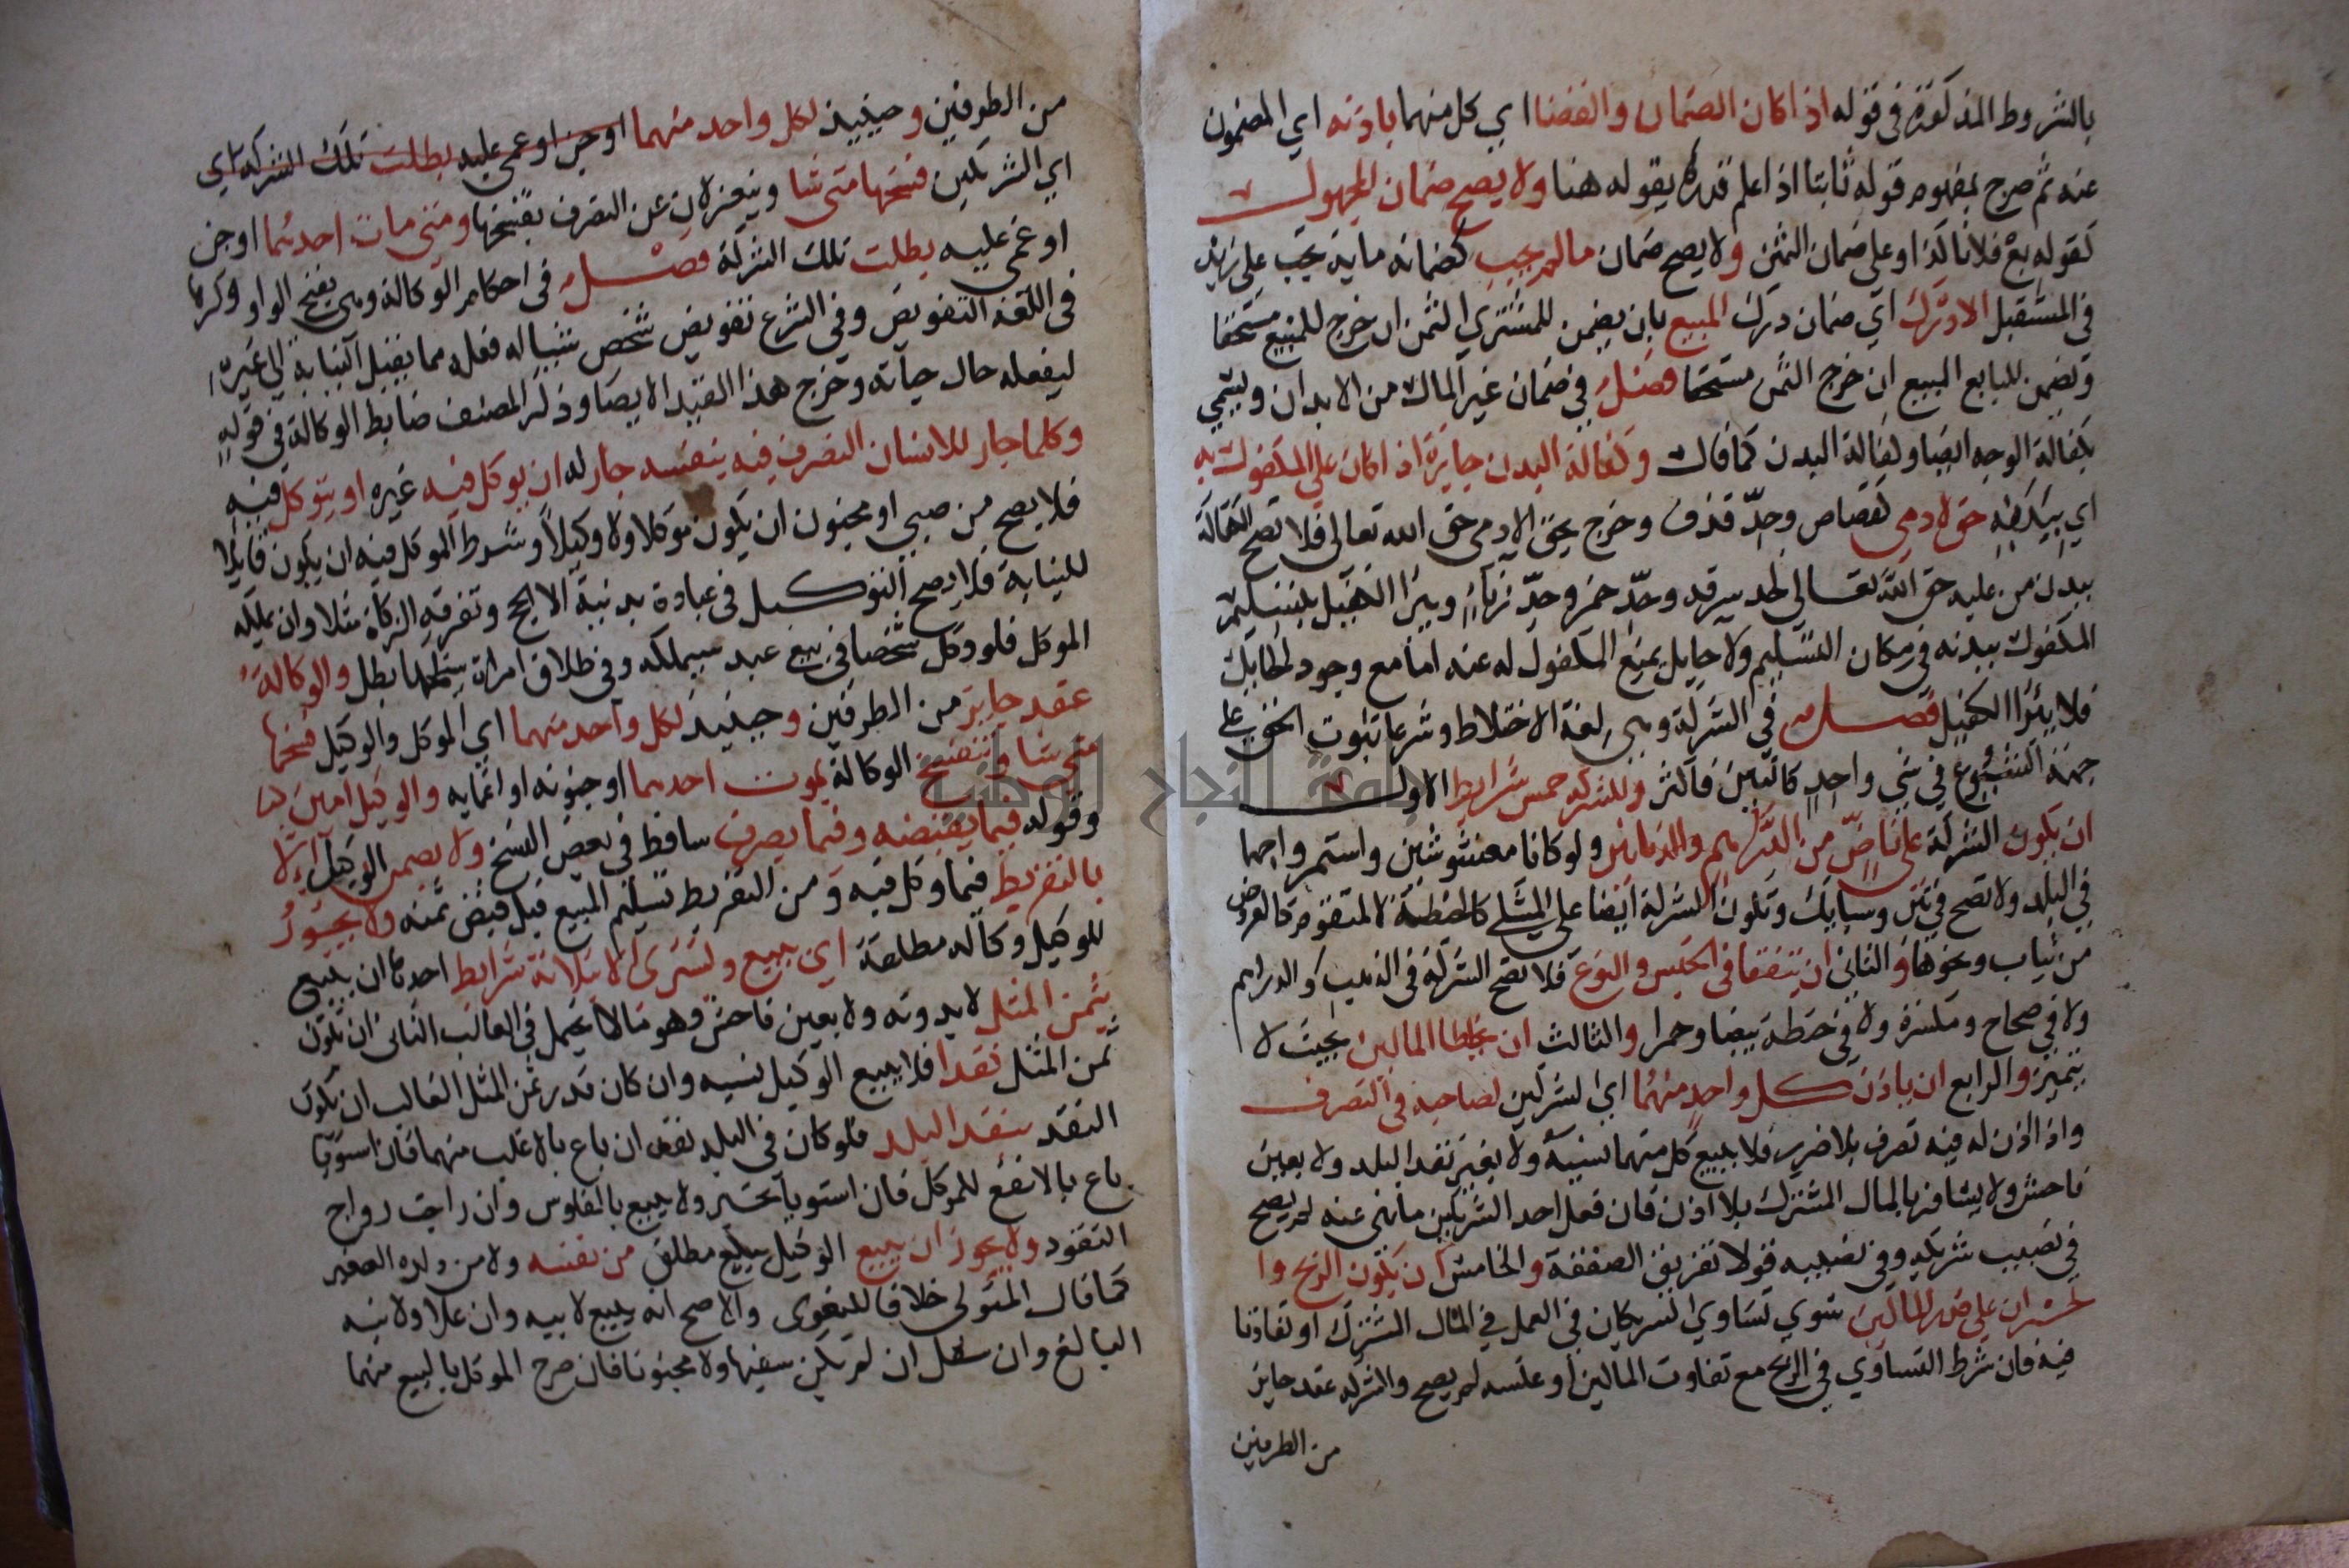 بالشروط المذكورة في قوله اذا كان الضمان والقضا اي كل منهما باذنه اي المضمون
عنه ثم صرح بمفهوم قوله ثابتا اذا علم قدرها بقوله هنا ولا يصح ضمان المجهول
كقوله بع فلانا كذا وعلى ضمان الثمن ولا يصح ضمان مالم يجب كضمانه ماية تجب على زيد
في المستقبل الا درك اي ضمان درك المبيع بان يضمن للمشتري الثمن ان خرج المبيع مستحقا
وتضمن للبايع المبيع ان خرج الثمن مستحقا فصل في ضمان غير المال من الابدان ويسمي
كفالة الوجه ايضا وكفالة البدن كما قال وكفالة البدن جايزة اذا كان على المكفول به
اي ببدنه حق لادمي كقصاص وحد قذف وخرج بحق الادمي حق الله تعالى فلا تصح الكفالة
ببدن من عليه حق الله تعالى كحد سرقه وحد خمر وحد زناء ويبرا الكفيل بتسليم
المكفول ببدنه في مكان التسليم ولا حايل يمنع المكفول له عنه اما مع وجود الحايل
فلا يبرا الكفيل فصل في الشركة وهي لغة الاختلاط وشرعا ثبوت الحق على
جهة الشيوع في شي واحد كاثنين فاكثر وللشركه خمس شرايط الاول
ان تكون الشركة على ناض من الدراهم والدنانير ولو كانا مغشوشين واستمر رواجهما
في البلد ولا تصح في تبر وسبايك وتكون الشركة ايضا على المثلي كالحنطة لا المتقوم كالعروض
من ثياب ونحوها والثاني ان يتفقا في الجنس والنوع فلا تصح الشركة في الذهب والدراهم
ولا في صحاح ومكسرة ولا في حنطة بيضا وحمرا والثالث ان يخلطا المالين بحيث لا
يتميز والرابع ان ياذن كل واحد منهما اي الشركين لصاحبه في التصرف
واذا اذن له فيه تصرف بلا ضرر فلا يبيع كل منهما نسية ولا بغير نقد البلد ولا بغبن
فاحش ولا يسافر بالمال المشترك بلا اذن فان فعل احد الشريكين ما نهي عنه لم يصح
في نصيب شريكه وفي نصيبه قولا تفريق الصفقة والخامس ان يكون الربح وا
لخسران على قدر المالين سوي تساوي الشريكان في العمل في المال المشترك او تفاوتا
فيه فان شرط التساوي في الربح مع تفاوت المالين او عكسه لم يصح والشركه عقد جايز
من الطرفين
من الطرفين وحينيذ لكل واحد منهما او جن او غمي عليه بطلت تلك الشركه اي
اي الشريكين فسخها متى شا وينعزلان عن التصرف بفسخها ومتى مات احدهما او جن
او غمي عليه بطلت تلك الشركة فصل في احكام الوكالة وهي بفتح الواو وكسرها
في اللغة التفويض وفي الشرع تفويض شخص شيا له فعله مما يقبل النيابة الى غيره
ليفعله حال حياته وخرج هذا القيد الايصا وذكر المصنف ضابط الوكالة في قوله
وكلما جاز للانسان التصرف فيه بنفسه جاز له ان يوكل فيه غيره او يتوكل فيه
فلا يصح من صبي او مجنون ان يكون موكلا ولا وكيلا وشرط الموكل فيه ان يكون قابلا
للنيابة فلا يصح التوكيل في عبادة بدنية الا الحج وتفرقه الزكاة مثلا وان يملكه
الموكل فلو وكل شخصا في بيع عبد سيملكه وفي طلاق امراة سينكحها بطل والوكالة
عقد جايز من الطرفين وحينيذ لكل واحد منهما اي الموكل والوكيل فسخها
متى شا وتنفسخ الوكالة بموت احدهما او جنونه او اغمايه والوكيل امين
وقوله فيما يقبضه وفيما يصرف ساقط في بعض النسخ ولا يضمن الوكيل الا
بالتفريط فيما وكل فيه ومن التفريط تسليم المبيع قبل قبض ثمنه ولا يجوز
للوكيل وكاله مطلقة ان يبيع ويشتري الا بثلاثة شرايط احدها ان يبيع
بثمن المثل لا بدونه ولا بغبن فاحش وهو مالا يحتمل في الغالب الثاني ان تكون
ثمن المثل نقدا فلا يبيع الوكيل نسيه وان كان قدر ثمن المثل الغالب ان يكون
النقد بنقد البلد فلو كان في البلد نقدان باع بالاغلب منهما فان استويا
باع بالانفع للموكل فان استويا تخير ولا يبيع بالفلوس وان راجت رواج
النقود ولا يجوز ان يبيع الوكيل بيع مطلق من نفسه ولا من ولده الصغير
كما قال المتولي خلافا للبغوي والاصح انه يبيع لابيه وان علا ولابنه
البالغ وان سفل ان لم يكن سفيها ولا مجنونا فان صرح الموكل بالبيع منهما
جامعة النجاح الوطنية